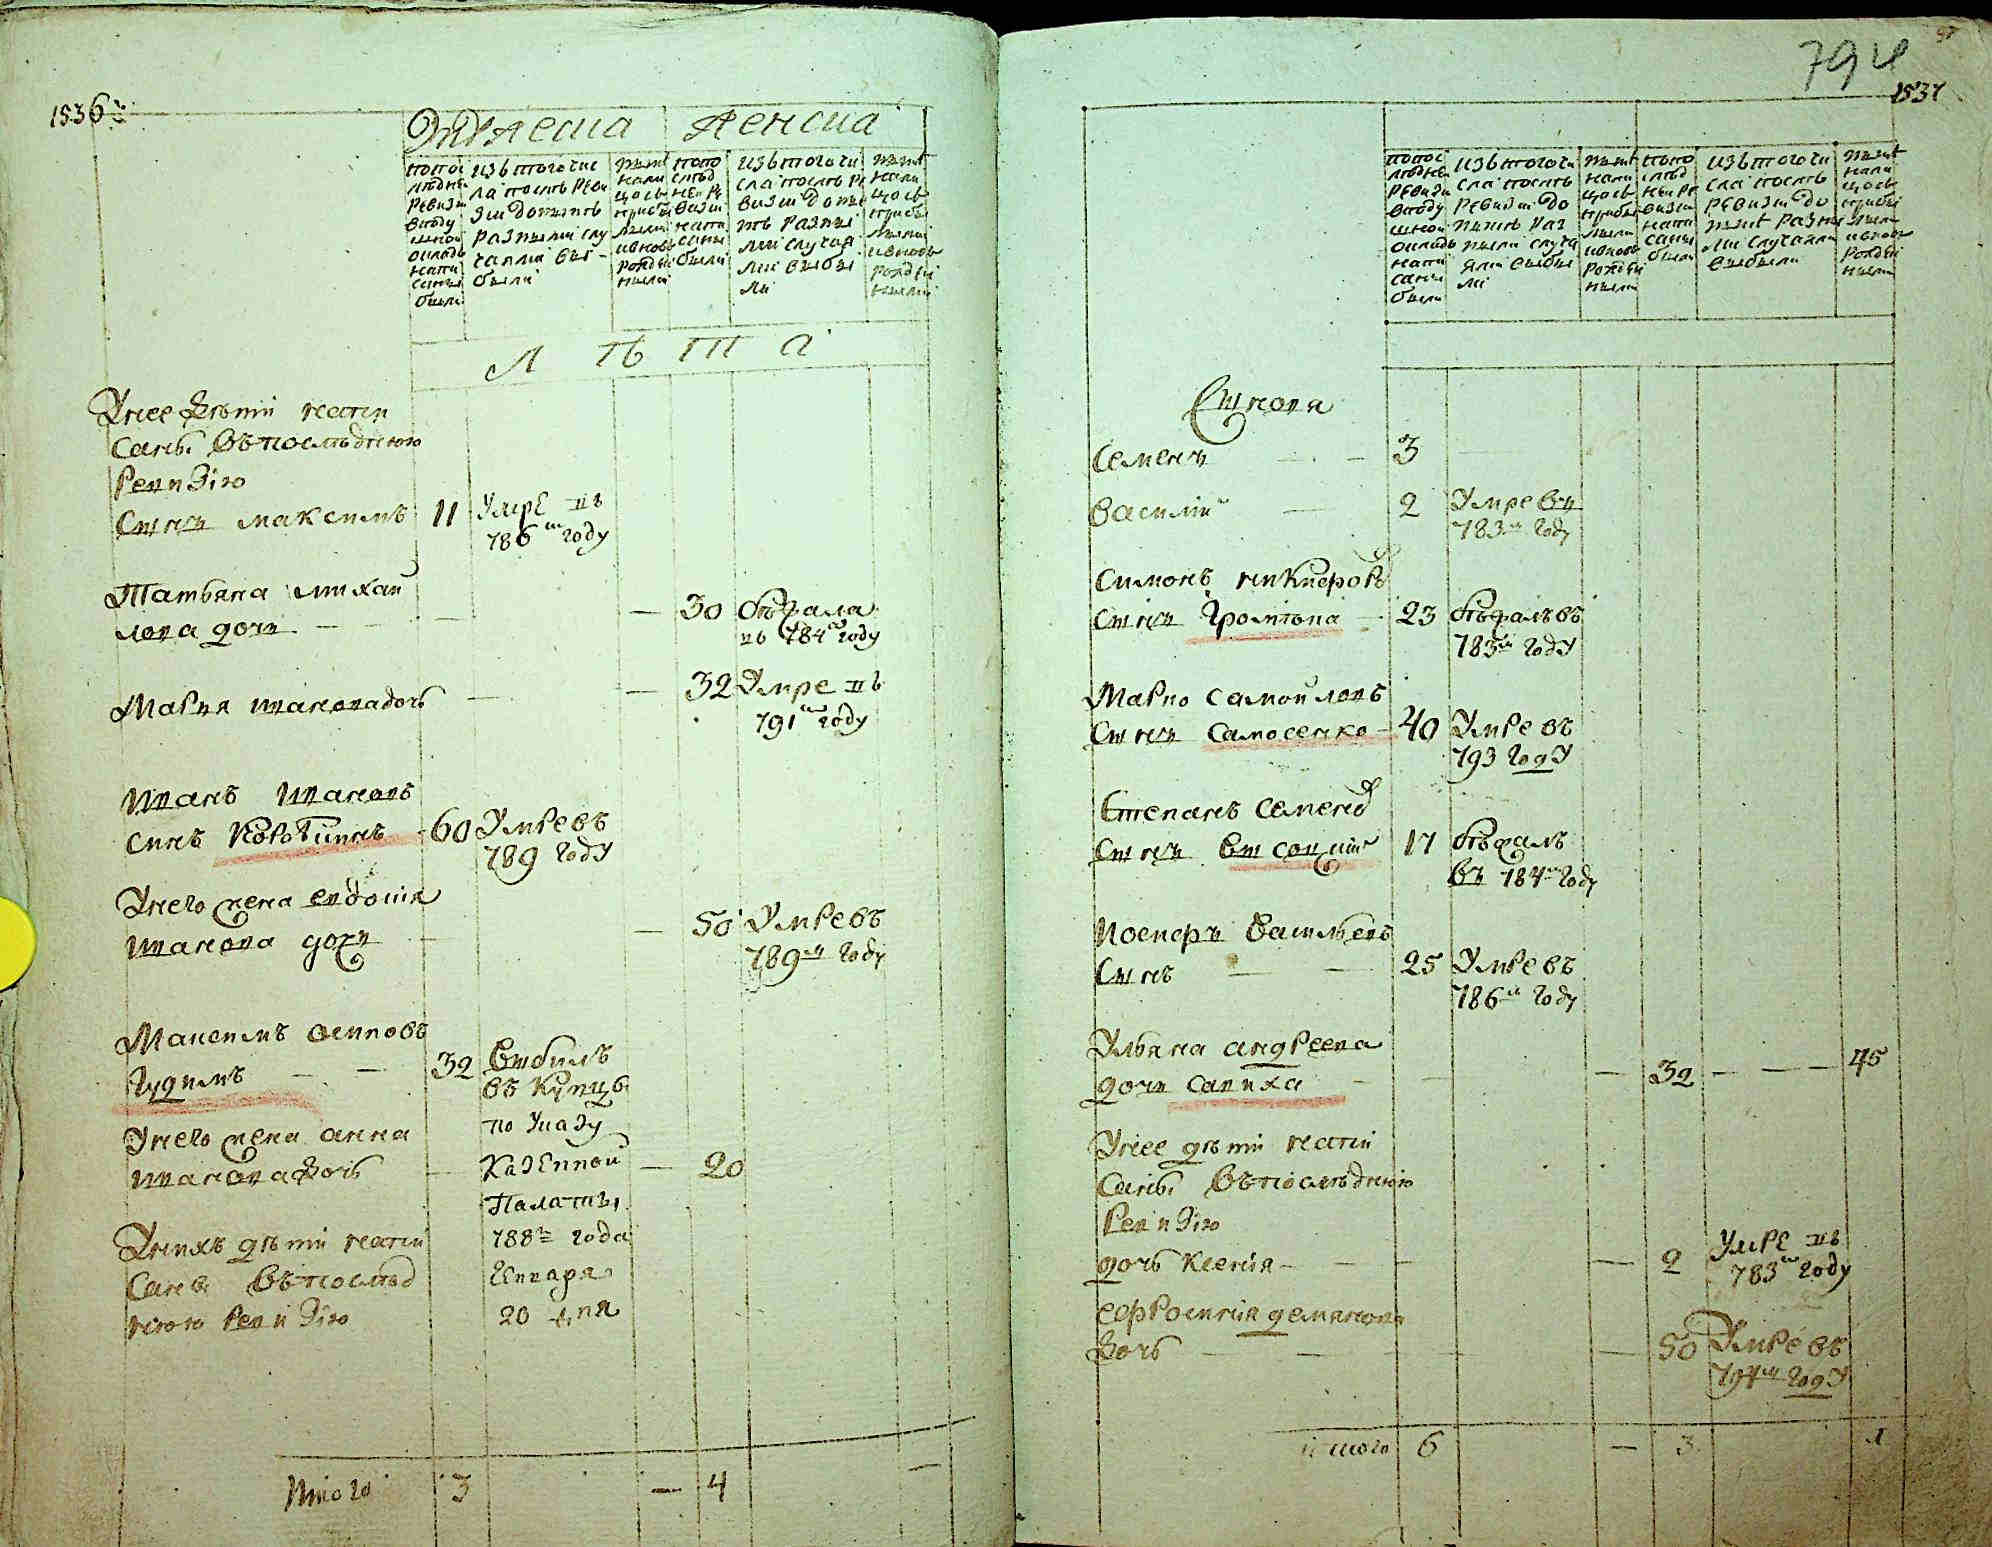 1536й
Мужеска Женска
по пос
леднеи
ревизи
в году
оклад
напи
саны
были
изъ того чис
ла после реви
зии до ныне
разными слу
чаями вы
были
ныне
нали
цо съ
прибы
лыми
и вновь
рожден
ными
по по
след
неи ре
визии
напи
саны
были
изъ того чи
сла после ре
визии до ны
не разны
ми случая
ми выбы
ли
ныне
нали
цо съ
прибы
лыми
и вновь
рожден
ными
Л ѣ т а
У нее дѣти напи
саны въ последнюю
ревизiю
Сынъ максимъ 11 Умре въ
786м году
Татьяна михаи
лова дочь — — — 30 бѣжала
въ 784м году
Мария иванова дочь — — 32 Умре въ
791м году
Иванъ Ивановъ
сынъ Коротинъ 60 Умре въ
789 году
У него жена евдокiя
иванова дочь — — 50 Умре въ
789м году
Максимъ осиповъ
Чудилъ — — 32 выбылъ
въ купцы
по указу
Казенной
Палаты
788го года
Генваря
20 дня
У него жена анна
иванова дочь — — 20
У нихъ дѣти напи
саны въ послед
нюю ревизiю
Итого 3 — 4 —
794
1537
по пос
леднеи
ревизи
в году
оклад
напи
саны
были
изъ того чи
сла после
ревизии до
ныне раз
ными случа
ями выбы
ли
ныне
нали
цо съ
прибы
лыми
и вновь
рожден
ными
по по
след
неи ре
визии
напи
саны
были
изъ того чи
сла после
ревизии до
ныне разны
ми случаями
выбыли
ныне
нали
цо съ
прибы
лыми
и вновь
рожден
ными
Сыновя
Семенъ — — 3 —
Василiй — 2 Умре въ
783м году
Симонъ никифоровъ
сынъ 23 бѣжалъ въ
783м году
Марко самойловъ
сынъ Самосенко — 40 Умре въ
793 году
Степанъ Семеновъ
сынъ высоцкiй 17 бѣжалъ
въ 784м году
Васильевъ
Сынъ — — 25 Умре въ
786м году
Ульяна андреева
дочь савиха — — — 32 — — — 45
У нее дѣти напи
саны въ последнюю
ревизiю
дочь Ксенiя — — — — 2 Умре въ
783м году
еφросинiя демянова
дочь — — — — 50 Умре въ
794м году
итого 6 — 3 1